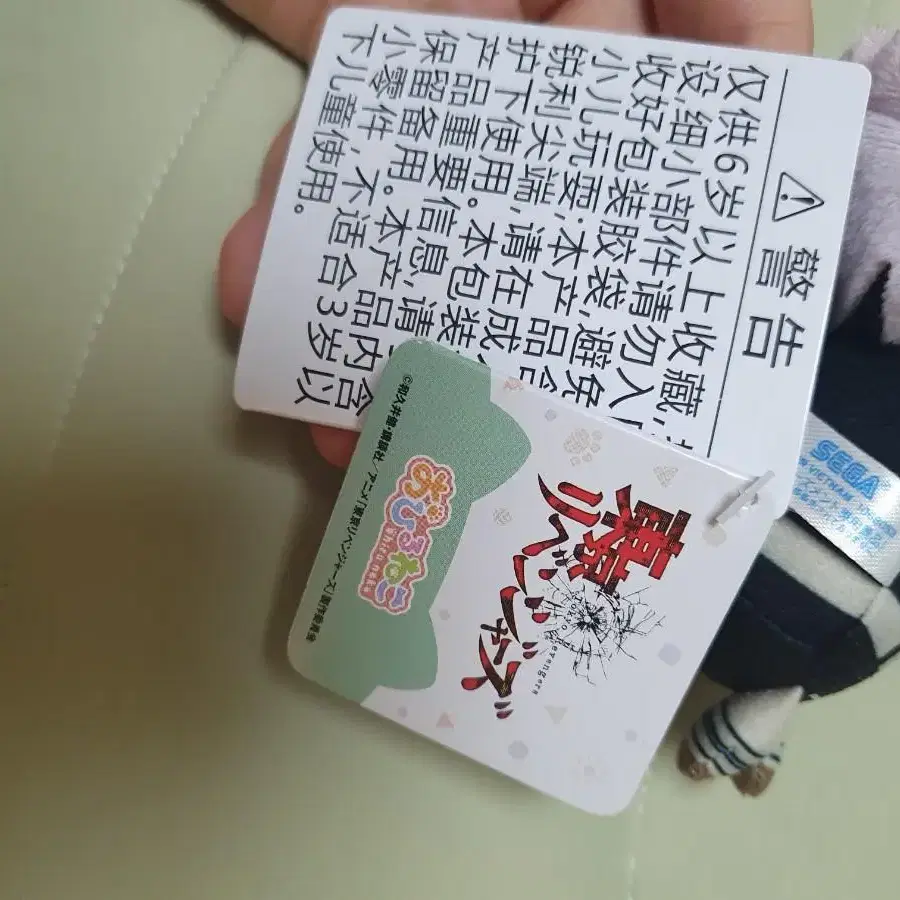 警告
仅供6岁以上收藏,
设,细小部件请勿入
收好包装胶袋,避免
小儿玩耍;本产品含
锐利尖端,请在成
护下使用。本包装
产品重要信息,请
保留备用。本产品内含
小零件,不适合3岁以
下儿童使用。
東京
リベンジャーズ
Tokyo Revengers
おひるねこ
Ohiruneko
©和久井健・講談社／アニメ「東京リベンジャーズ」製作委員会
SEGA
VIETNAM